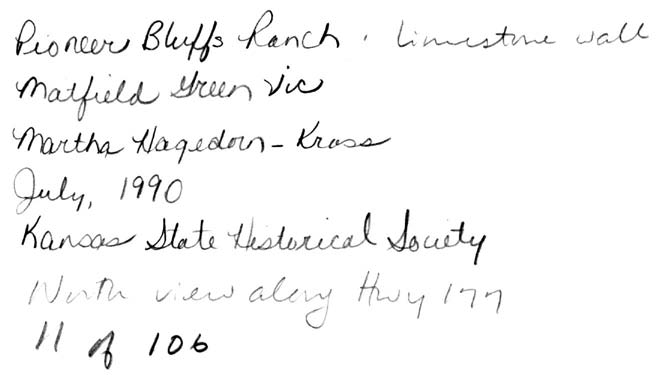 Pioneer Bluffs Ranch . Limestone wall
Matfield Green Vic
Martha Hagedorn-Krass
July, 1990
Kansas State Historical Society
North view along Hwy 177
11 of 106